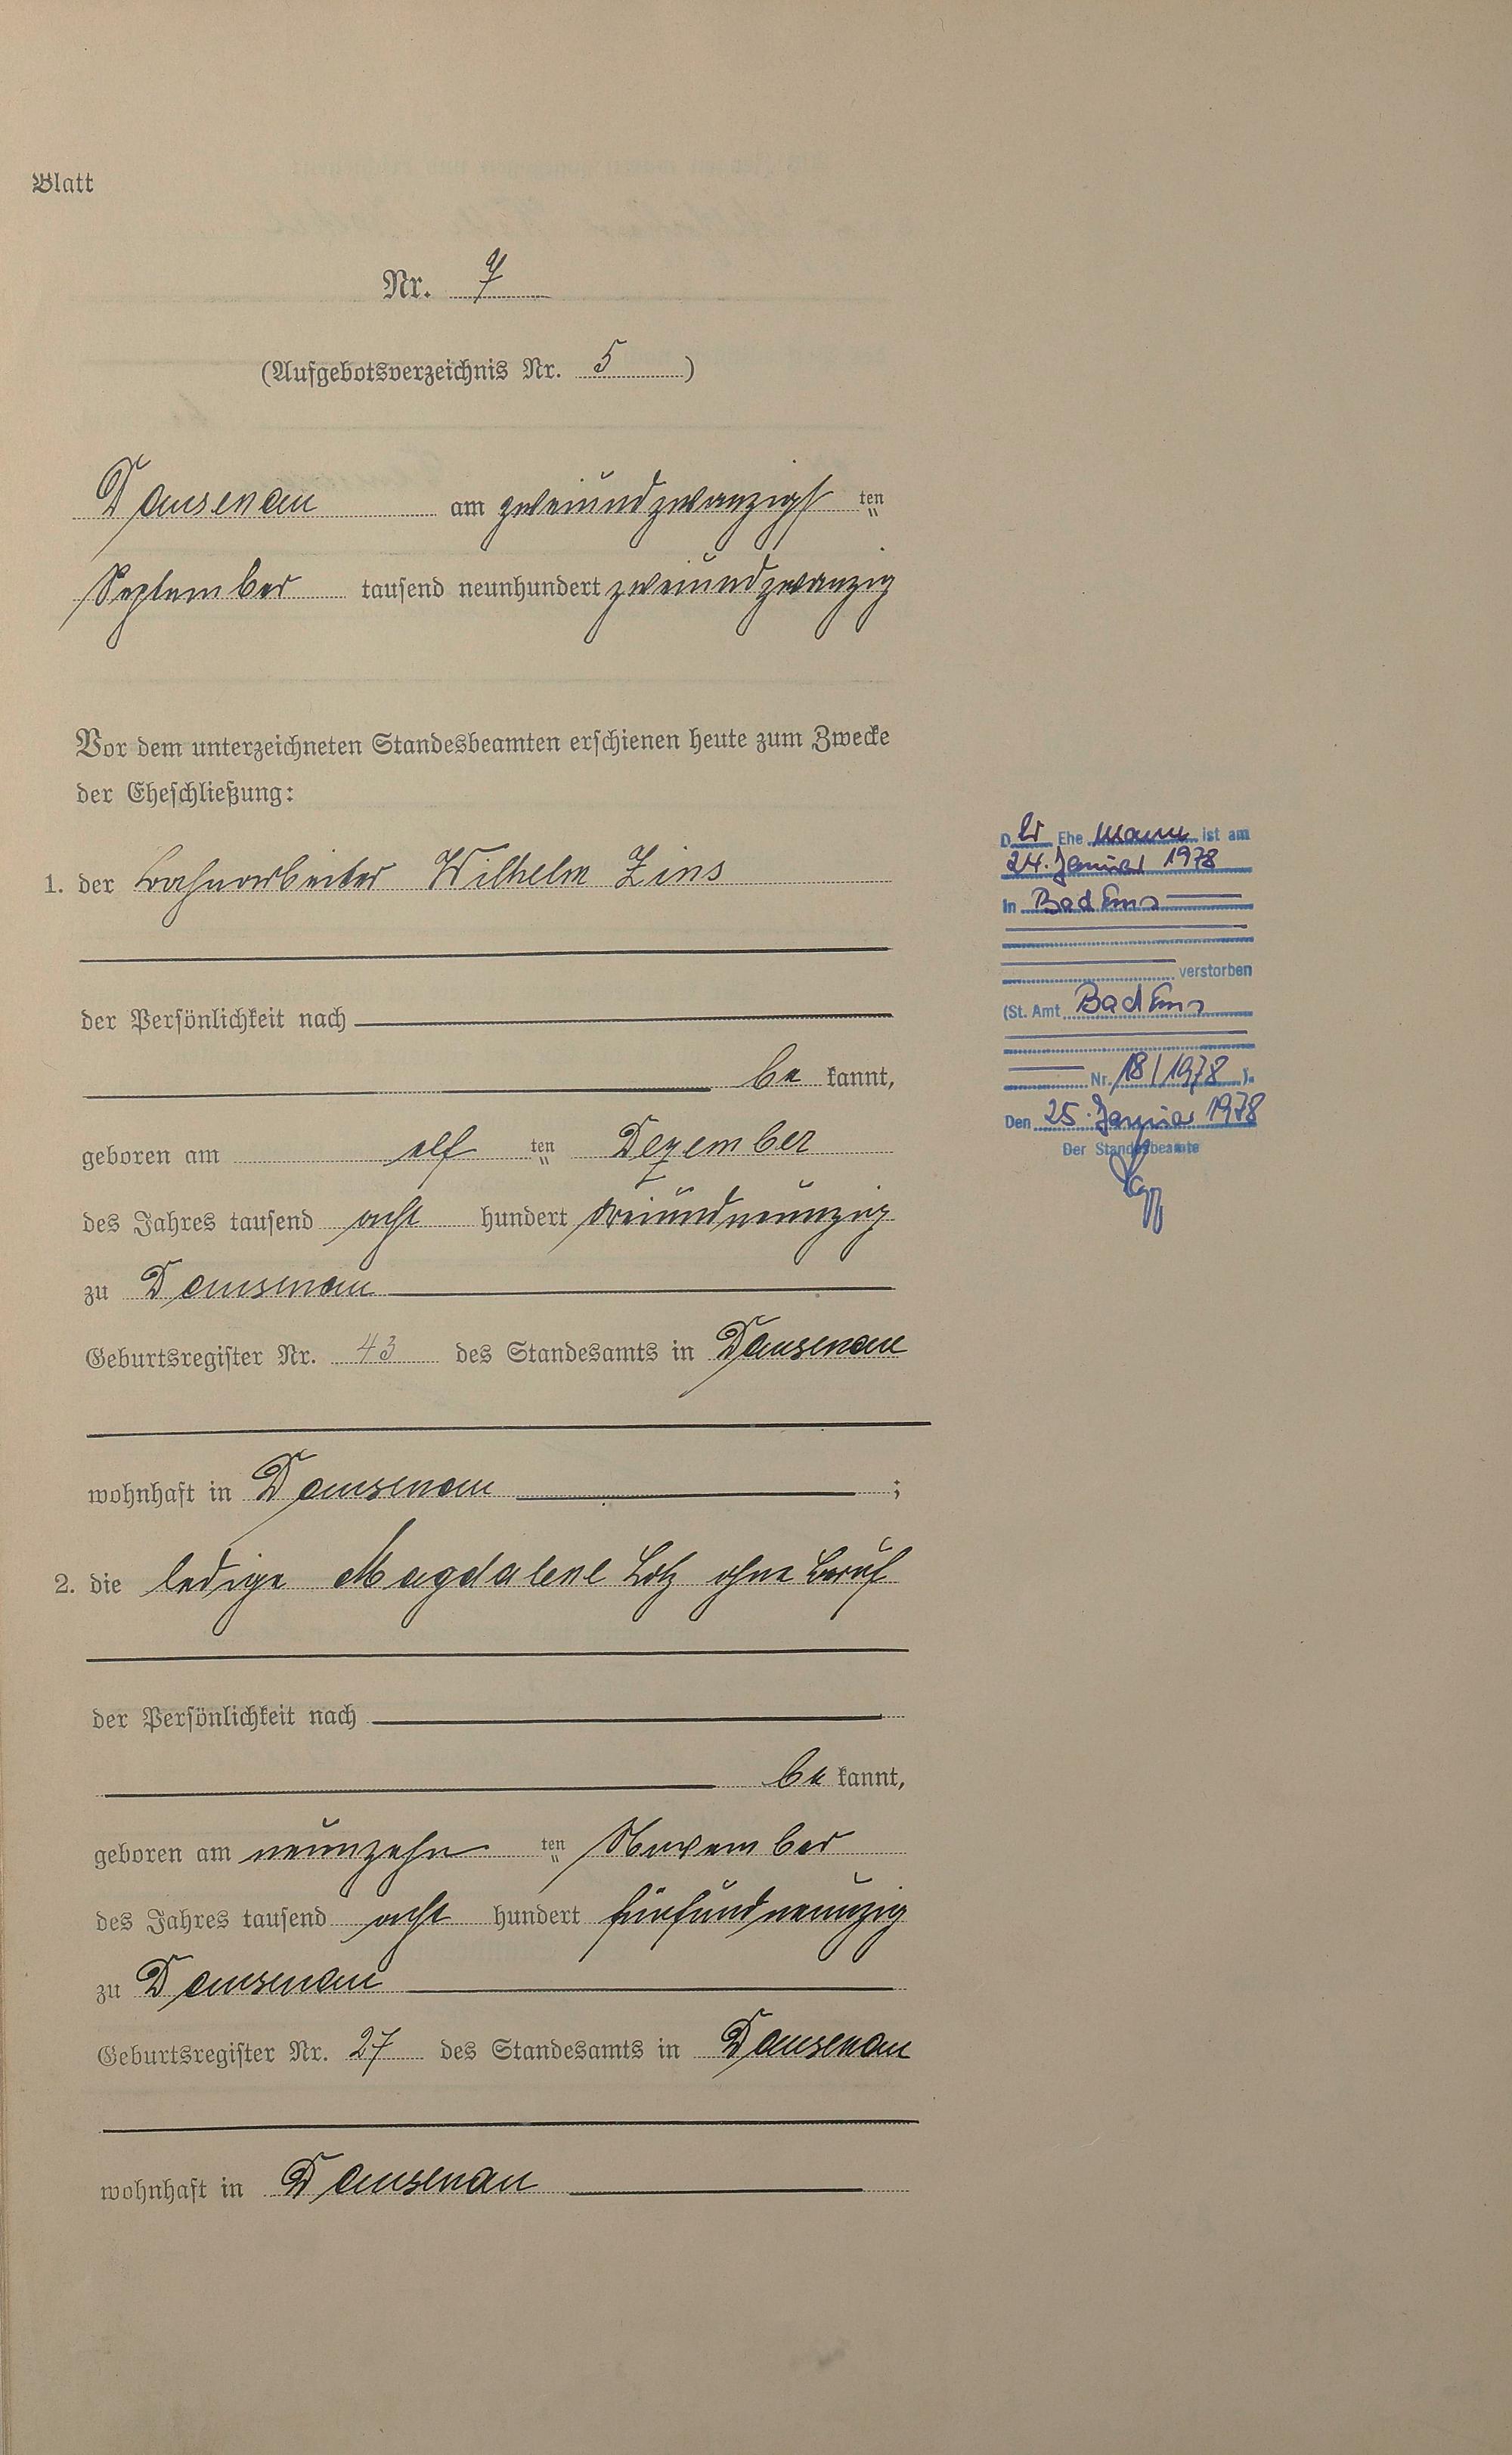 Blatt
Nr. 7
(Aufgebotsverzeichnis Nr. 5)
Dausenau am zweiundzwanzigsten
September tausend neunhundert zweiundzwanzig
Vor dem unterzeichneten Standesbeamten erschienen heute zum Zwecke
der Eheschließung:
1. der Bahnarbeiter Wilhelm Zins
der Persönlichkeit nach
bekannt,
geboren am elf ten Dezember
des Jahres tausend acht hundert dreiundneunzig
zu Dausenau
Geburtsregister Nr. 43 des Standesamts in Dausenau
wohnhaft in Dausenau ;
2. die ledige Magdalene Lotz ohne Beruf
der Persönlichkeit nach
bekannt,
geboren am neunzehn ten November
des Jahres tausend acht hundert fünfundneunzig
zu Dausenau
Geburtsregister Nr. 27 des Standesamts in Dausenau
wohnhaft in Dausenau
Der Ehemann ist am
24. Januar 1978
in Bad Ems
verstorben
(St. Amt Bad Ems
Nr. 18/1978).
Den 25. Januar 1978
Der Standesbeamte